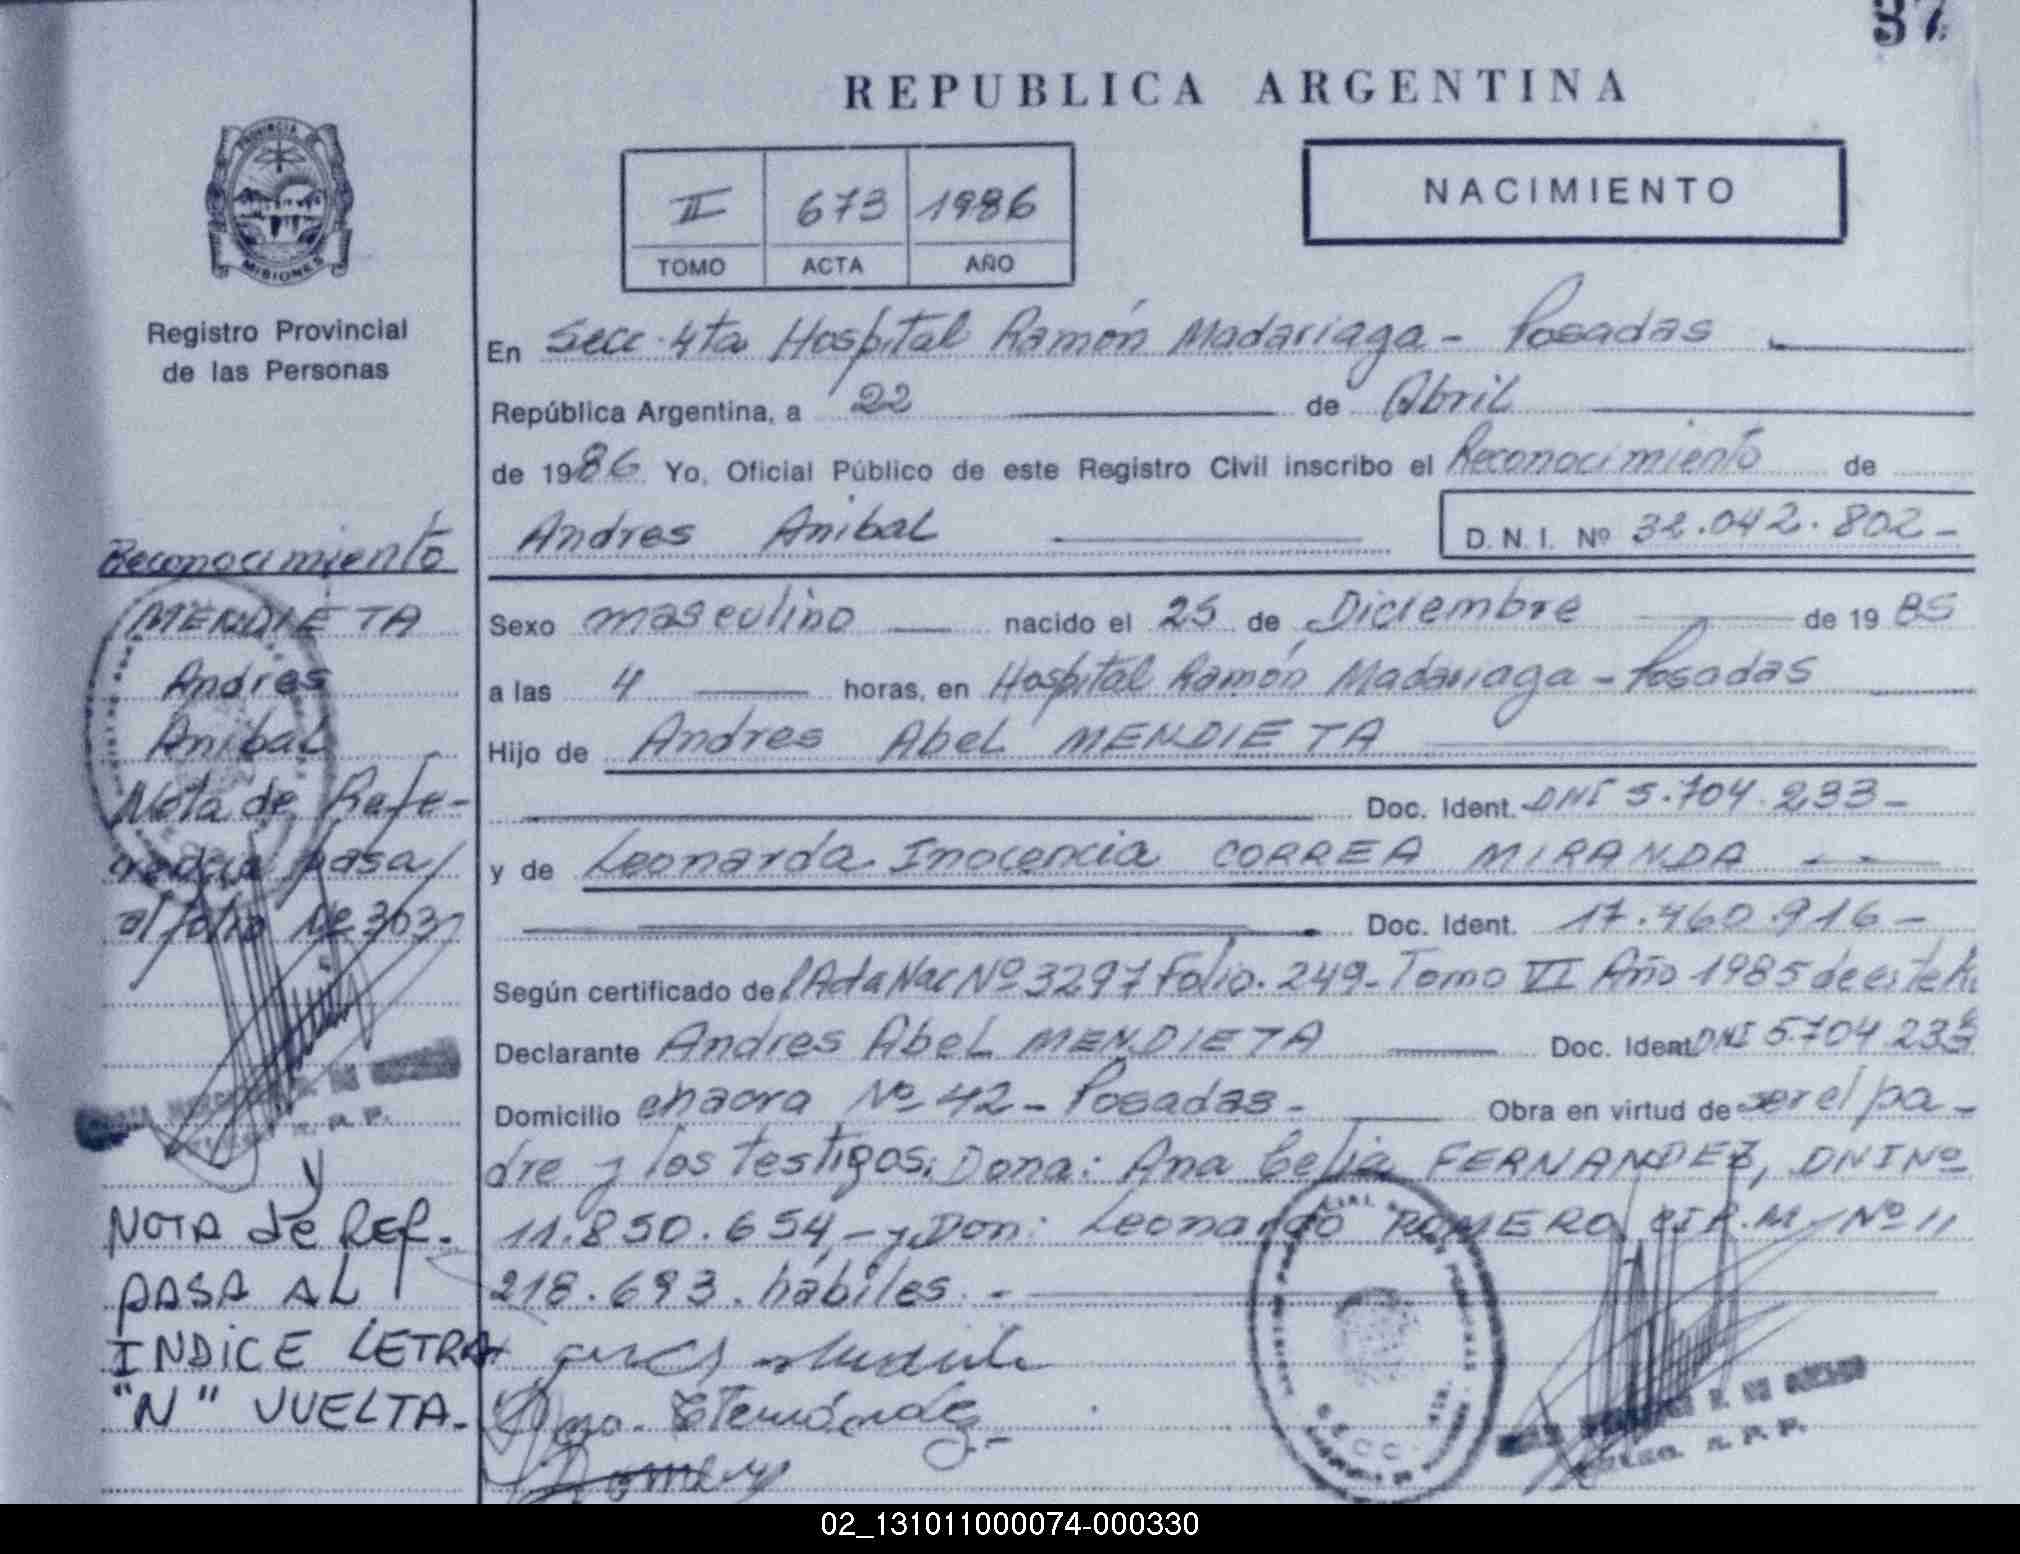 37
REPUBLICA ARGENTINA
PROVINCIA
MISIONES
II 673 1986
TOMO ACTA AÑO
NACIMIENTO
Registro Provincial
de las Personas
En Secc. 4ta Hospital Ramón Madariaga - Posadas
República Argentina, a 22 de Abril
de 1986 Yo, Oficial Público de este Registro Civil inscribo el Reconocimiento de
Andres Anibal D.N.I. Nº 32.042.802-
Sexo masculino nacido el 25 de Diciembre de 1985
a las 4 horas, en Hospital Ramón Madariaga - Posadas
Hijo de Andres Abel MENDIETA
Doc. Ident. DNI 5.704.233-
y de Leonarda Inocencia CORREA MIRANDA
Doc. Ident. 17.460.916-
Según certificado de l Acta Nac Nº 3297 Folio. 249- Tomo VI Año 1985 de este
Declarante Andres Abel MENDIETA Doc. Ident DNI 5704 233
Domicilio Nº 42 - Posadas - Obra en virtud de ser el pa-
dre y los testigos: Dona: Ana Celia FERNANDEZ, DNI Nº
11.850.654,- y Don: Leonardo ROMERO M. Nº 11
218.693. hábiles. -
Reconocimiento
MENDIETA
Andres
Anibal
Nota de Refe-
rencia pasa
al folio Nº 303
y
NOTA de REF.
PASA AL
INDICE LETRA
"N" VUELTA.
02_131011000074-000330